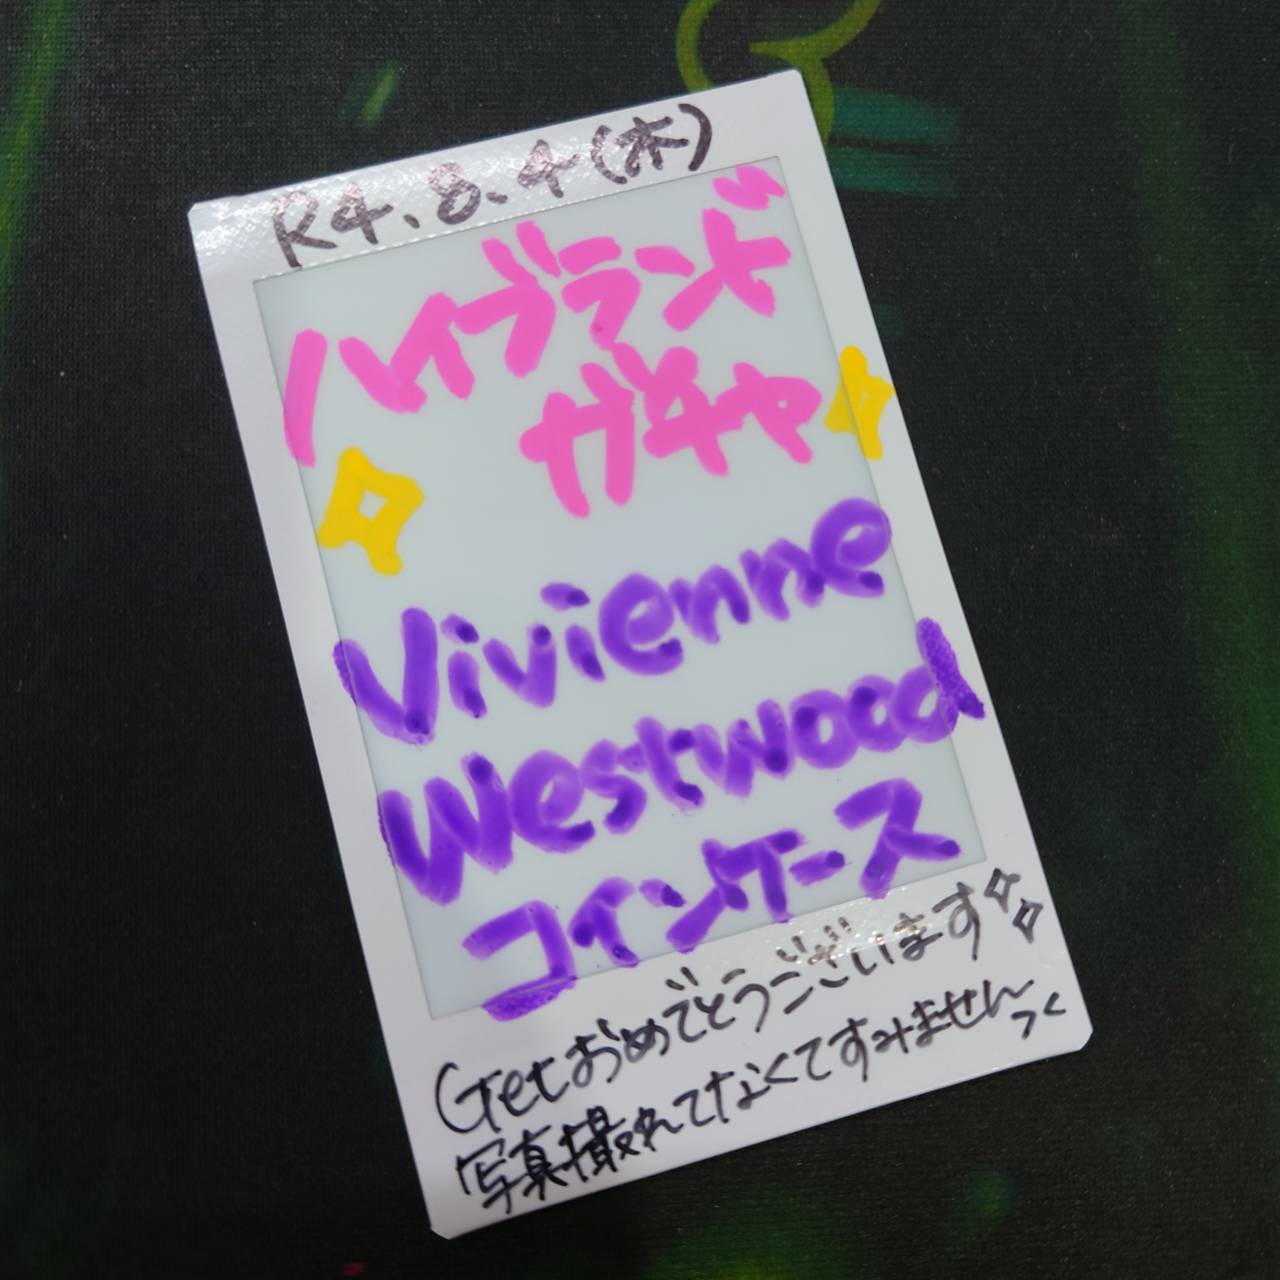 R4.8.4(木)
ハイブランド
ガチャ
Vivienne
Westwood
コインケース
Getおめでとうございます
写真撮れてなくてすみません